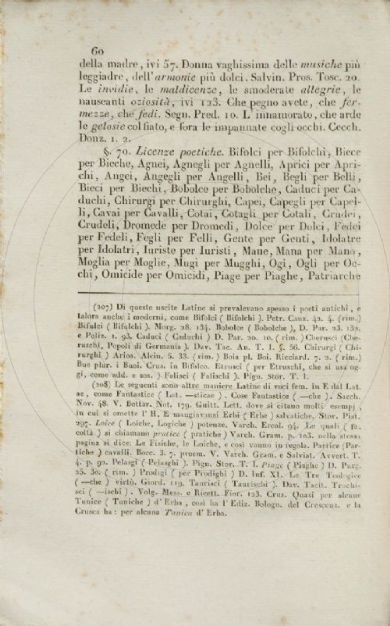 60
della madre, ivi 57. Donna vaghissima delle musiche più
leggiadre, dell'armonie più dolci. Salvin. Pros. Tosc. 20.
Le invidie, le maldicenze, le smoderate allegrie, le
nauseanti oziosità, ivi 123. Che pegno avete, che fer-
mezze, che fedi. Segn. Pred. 10. L'innamorato, che arde
le gelosie col fiato, e fora le impannate cogli occhi. Cecch.
Donz. 1. 2.
§. 70. Licenze poetiche. Bifolci per Bifolchi, Biece
per Bieche, Agnei, Agnegli per Agnelli, Aprici per Apri-
chi, Angei, Angegli per Angelli, Bei, Begli per Belli,
Bieci per Biechi, Bobolce per Bobolche, Caduci per Ca-
duchi, Chirurgi per Chirurghi, Capei, Capegli per Capel-
li, Cavai per Cavalli, Cotai, Cotagli per Cotali, Crudei,
Crudeli, Dromede per Dromedi, Dolce per Dolci, Fedei
per Fedeli, Fegli per Felli, Gente per Genti, Idolatre
per Idolatri, Iuriste per Iuristi, Mane, Mana per Mano,
Moglia per Moglie, Mugi per Mugghi, Ogi, Ogli per Oc-
chi, Omicide per Omicidi, Piage per Piaghe, Patriarche
(207) Di queste uscite Latine si prevalevano spesso i poeti antichi, e
talora anche i moderni, come Bifolci ( Bifolchi ). Petr. Canz. 42. 4. (rim.)
Bifulci ( Bifulchi ). Morg. 28. 134. Bobolce ( Bobolche ), D. Par. 23. 132.
e Poliz. 1. 93. Caduci ( Caduchi ) D. Par. 20. 12. ( rim. ) Cherusci (Che-
ruschi, Popoli di Germania ). Dav. Tac. An. T. I. §. 56. Chirurgi ( Chi-
rurghi ) Arios. Alcin. 5. 33. ( rim. ) Boia pl. Boi. Ricciard. 7. 2. ( rim. )
Bue plur. i Buoi. Cruz. in Bifolco. Etrusci ( per Etruschi, che si usa og-
gi, come add. e sos. ) Falisci ( Falischi ). Pign. Stor. T. I.
(208) Le seguenti sono altre maniere Latine di voci fem. in E dal Lat.
ae, come Fantastice ( Lot. —sticae ). Cose Fantastice ( —che ). Sacch.
Nov. 48. V. Bottar. Not. 179. Guitt. Lett. dove si citano molti esempj,
in cui si omette l'H, E mangiavansi Erbi ( Erbe ) salvatiche, Stor. Pist.
297. Loice ( Loiche, Logiche ) potenze. Varch. Ercol. 94. Le quali ( fa-
coltà ) si chiamano pratice ( pratiche ) Varch. Gram. p. 203. nella stessa
pagina si dice. Le Fisiche, le Loiche, e così vanno in regola. Patrice (Par-
tiche ) cavalli. Bocc. 3. 7. proem. V. Varch. Gram. e Salviat. Avvert. T.
4. p. 92. Pelasgi ( Pelasghi ). Pign. Stor. T. I. Piage ( Piaghe ) D. Purg.
25. 30. ( rim. ) Prodigi ( per Prodighi ) D. Inf. XI. Le Tre Teologice
( —che ) virtù. Giord. 119. Taurisci ( Taurischi ). Dav. Tacit. Trochi-
sci ( —ischi ). Volg. Mess. e Ricett. Fior. 123. Cruz. Quasi per alcune
Tunice ( Tuniche ) d'Erba, così ha l'Ediz. Bologn. del Crescenz. e la
Crusca ha : per alcuna Tunica d'Erba.